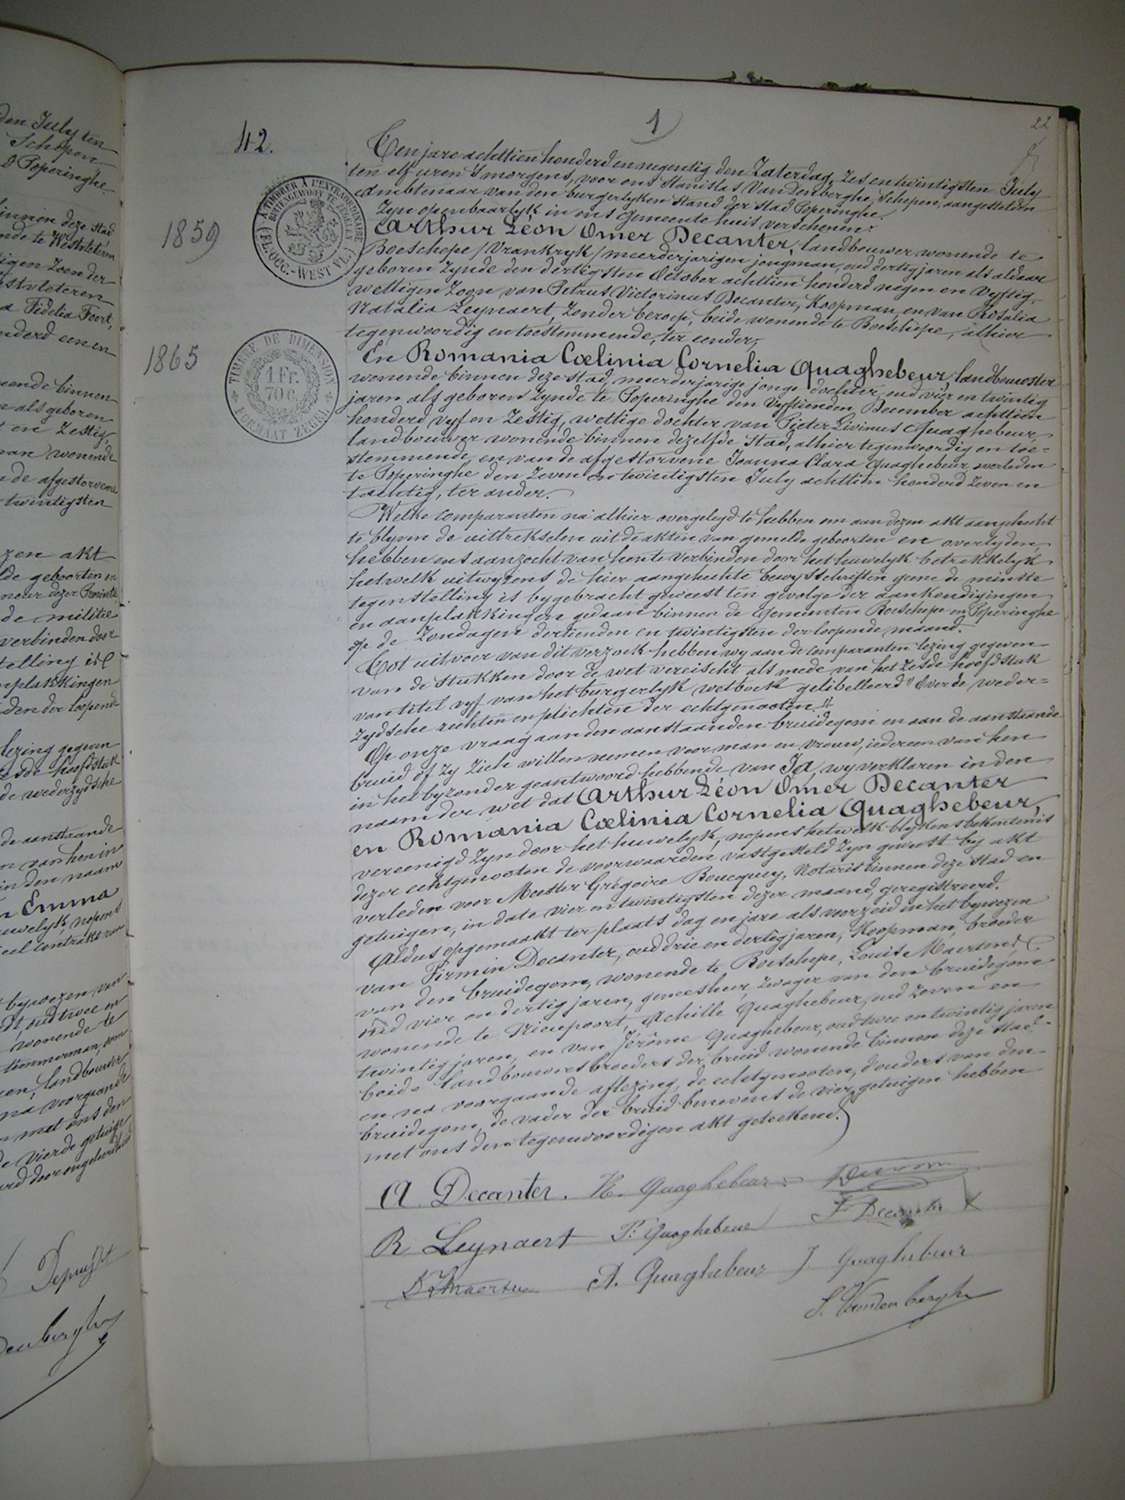 den July ten
Schepen
Poperinghe
binnen deze stad
nde te Westvleteren
tigen Zoon der
estvleteren
a Fidelia Fort,
onderd een en
zen akt
de militie
verbinden door
nplakkingen
lezing gegeven
de wederzydsche
de aanstaande
in den naam
n Emma
22
1)
42.
1859
1865
TE TIMBRER À L'EXTRAORDINAIRE
(FL. OCC.-WEST VL.)
TIMBRE DE DIMENSION
1 Fr.
70 C.
FORMAAT ZEGEL
Ten jare achttien honderd en negentig den Zaterdag, zes en twintigsten July
ten elf uren 's morgens, voor ons Stanislas Vandenberghe, Schepen, aangestelden
ambtenaar van den burgerlyken stand der Stad Poperinghe,
zyn openbaarlyk in ons Gemeente huis verschenen:
Arthur Léon Omer Decanter, landbouwer wonende te
Boeschepe /Vrankryk/ meerderjarigen jongman, oud dertig jaren als aldaar
geboren zynde den dertigsten October achttien honderd negen en vyftig,
wettigen Zoon van Petrus Victorinus Decanter, Koopman, en van Rosalia
Natalia Leynaert, zonder beroep, beide wonende te Boeschepe, alhier
tegenwoordig en toestemmende, ter eender,
En Romania Cœlinia Cornelia Quaghebeur, landbouwster
wonende binnen deze stad, meerderjarige jonge dochter, oud vier en twintig
jaren als geboren zynde te Poperinghe den vyftienden December achttien
honderd vyf en zestig, wettige dochter van Pieter Livinus Quaghebeur,
landbouwer wonende binnen dezelfde Stad, alhier tegenwoordig en toe-
stemmende, en van de afgestorvene Joanna Clara Quaghebeur, overleden
te Poperinghe den zeven en twintigsten July achttien honderd zeven en
tachtig, ter ander.
Welke comparanten na alhier overgelegd te hebben om aan dezen akt aangehecht
te blyven de uittrekselen uit de akten van gemelde geboorten en overlyden
hebben ons aanzocht van hen te verbinden door het huwelyk betrekkelyk
hetwelk uitwyzens de hier aangehechte bewysschriften geene de minste
tegenstelling is bygebracht geweest ten gevolge der aankondigingen
en aanplakkingen gedaan binnen de Gemeenten Boeschepe en Poperinghe
op de Zondagen dertienden en twintigsten der loopende maand.
Tot uitvoer van dit verzoek hebben wy aan de comparanten lezing gegeven
van de stukken door de wet vereischt als mede van het zesde hoofdstuk
van titel vyf van het burgerlyk wetboek gelibelleerd "Over de weder-
zydsche rechten en plichten der echtgenooten."
Op onze vraag aan den aanstaanden bruidegom en aan de aanstaande
bruid of zy zich willen nemen voor man en vrouw, iedereen van hen
in het byzonder geantwoord hebbende van Ja, wy verklaren in den
naam der wet dat Arthur Léon Omer Decanter
en Romania Cœlinia Cornelia Quaghebeur,
vereenigd zyn door het huwelyk, nopens hetwelk blydens bekentenis
dezer echtgenooten de voorwaarden vastgesteld zyn geweest by akt
verleden voor Meester Grégoire Boucquey, Notaris binnen deze stad en
getuigen, in date vier en twintigsten dezer maand, geregistreerd.
Aldus opgemaakt ter plaats dag en jare als voorzeid in het bywezen
van Firmin Decanter, oud drie en dertig jaren, Koopman, broeder
van den bruidegom, wonende te Boeschepe, Louis Maertens,
oud vier en dertig jaren, geneesheer, zwager van den bruidegom
wonende te Nieupoort, Achille Quaghebeur, oud zeven en
twintig jaren, en van Jérôme Quaghebeur, oud twee en twintig jaren
beide landbouwers broeders der bruid wonende binnen deze stad
en na voorgaande aflezing, de echtgenooten, d'ouders van den
bruidegom, de vader der bruid benevens de vier getuigen hebben
met ons den tegenwoordigen akt geteekend.
A. Decanter. R. Quaghebeur Decanter
R Leynaert P. Quaghebeur F. Decanter
Dr Maertens A. Quaghebeur J Quaghebeur
S. Vandenberghe